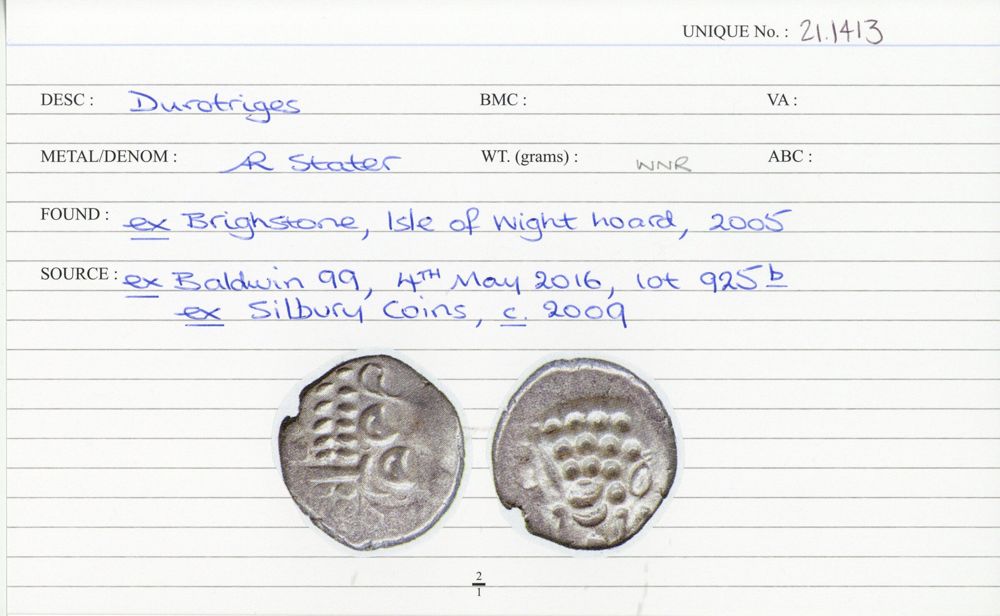 UNIQUE No. : 21.1413
DESC : Durotriges BMC : VA :
METAL/DENOM : AR Stater WT. (grams) : WNR ABC :
FOUND : ex Brighstone, Isle of Wight hoard, 2005
SOURCE : ex Baldwin 99, 4TH May 2016, lot 925b
ex Silbury Coins, c. 2009
2
1